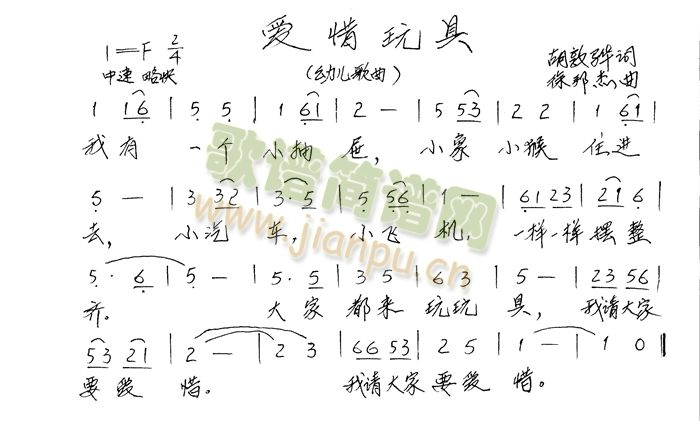 爱惜玩具
1=F 2/4
中速 略快
(幼儿歌曲)
胡敦骅词
徐邦杰曲
1 1 6 | 5 5 | 1 6 1 | 2 — | 5 5 3 | 2 2 | 1 6 1 |
我有 一个 小抽 屉, 小象 小猴 住进
5 — | 3 3 2 | 3 · 5 | 5 5 6 | 1 — | 6 1 2 3 | 2 1 6 |
去, 小汽 车, 小飞 机, 一样一样 摆整
5 · 6 | 5 — | 5 · 5 | 3 5 | 6 3 | 5 — | 2 3 5 6 |
齐。 大家 都来 玩玩 具, 我请大家
5 3 2 1 | 2 — | 2 3 | 6 6 5 3 | 2 5 | 1 — | 1 0 ‖
要爱 惜。 我请大家 要爱 惜。
歌谱简谱网
www.jianpu.cn